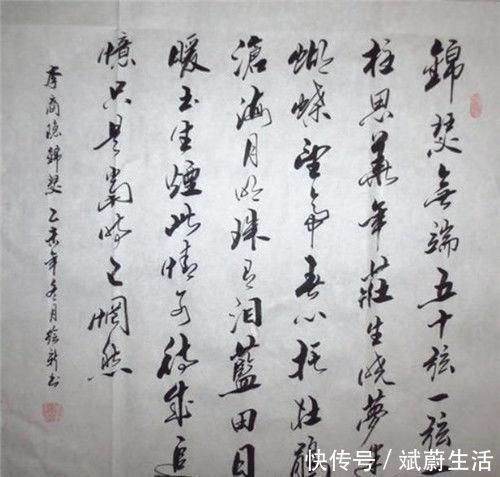 錦瑟無端五十弦一弦一
柱思華年莊生曉夢迷
蝴蝶望帝春心托杜鵑
滄海月明珠有淚藍田日
暖玉生煙此情可待成追
憶只是當時已惘然
李商隱錦瑟 乙未年冬月
快传号/斌蔚生活